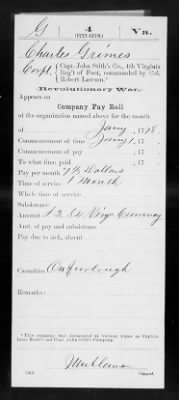 G | 4 | Va.
(11TH-STITH)
Charles Grimes
Corpl., Capt. John Stith's Co., 4th Virginia
Reg't of Foot, commanded by Col.
Robert Lawson.*
Revolutionary War.
Appears on
Company Pay Roll
of the organization named above for the month
of Jany, 1778.
Commencement of time Jany 1, 17
Commencement of pay , 17
To what time paid , 17
Pay per month 7⅓ Dollars
Time of service 1 Month
Whole time of service
Subsistence
Amount $ 2.8. Virga Currency
Amt. of pay and subsistence
Pay due to sick, absent
Casualties On furlough
Remarks:
*This company was designated at various times as Captain
and Capt. John Stith's Company.
Copyist.